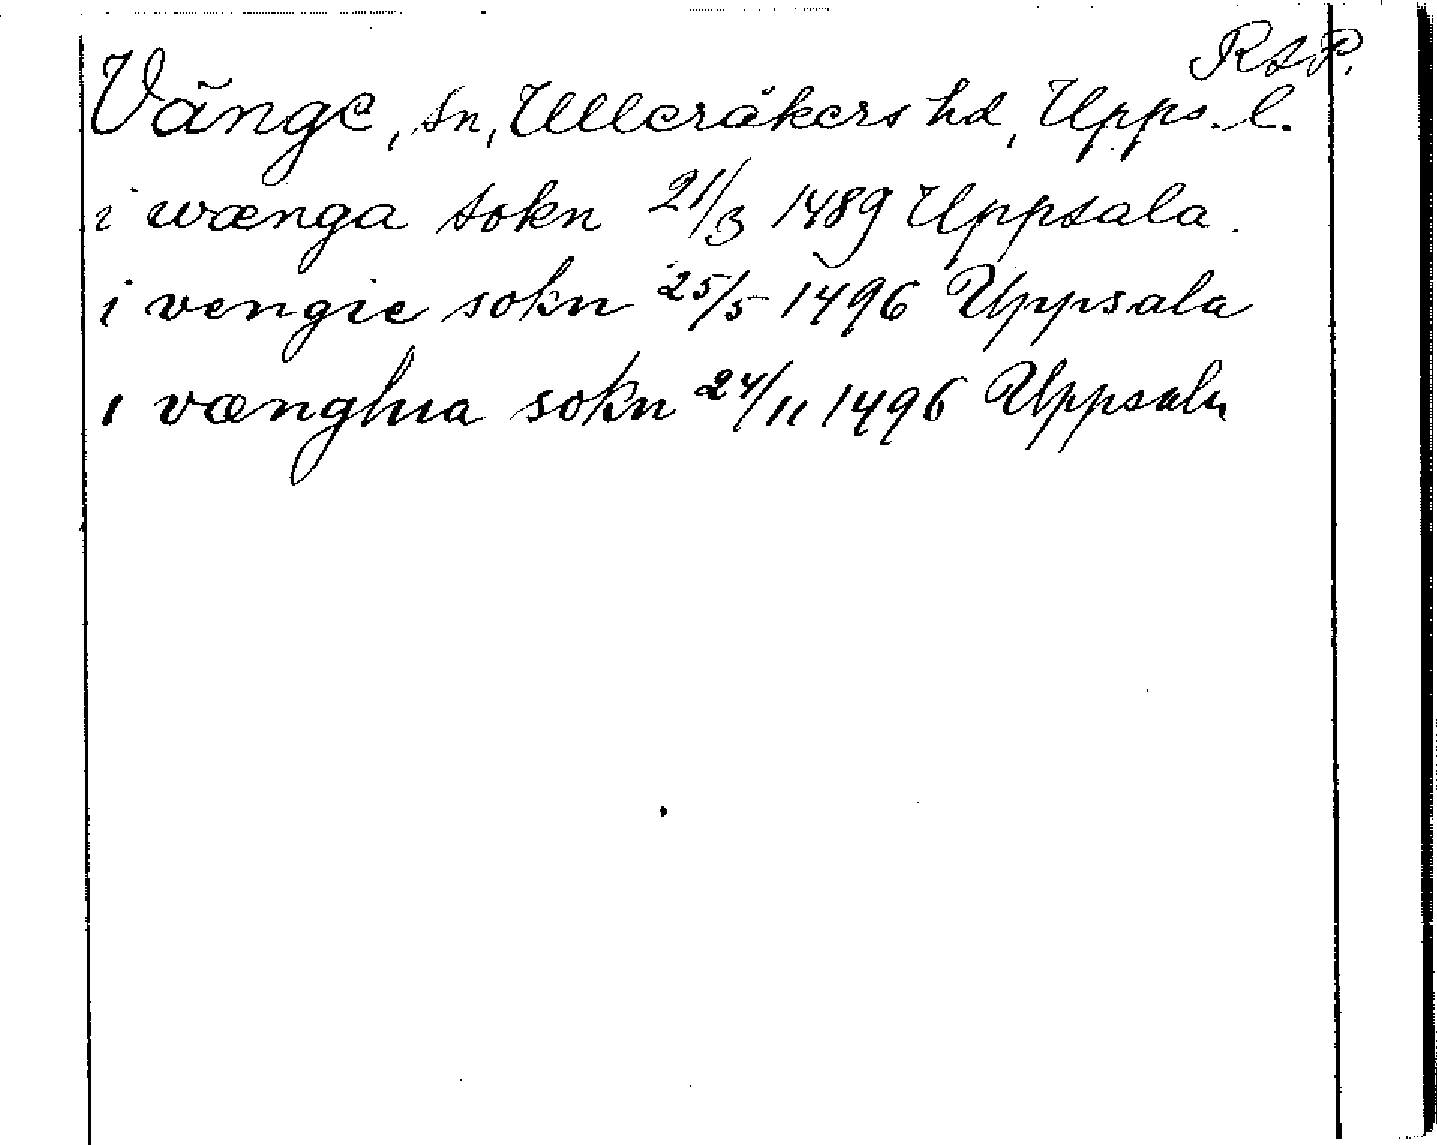 RAP.
Vänge, sn, Ulleråkers hd, Upps. l.
i wænga sokn 21/3 1489 Uppsala.
i vengie sokn 25/5 1496 Uppsala
i vænghia sokn 24/11 1496 Uppsala